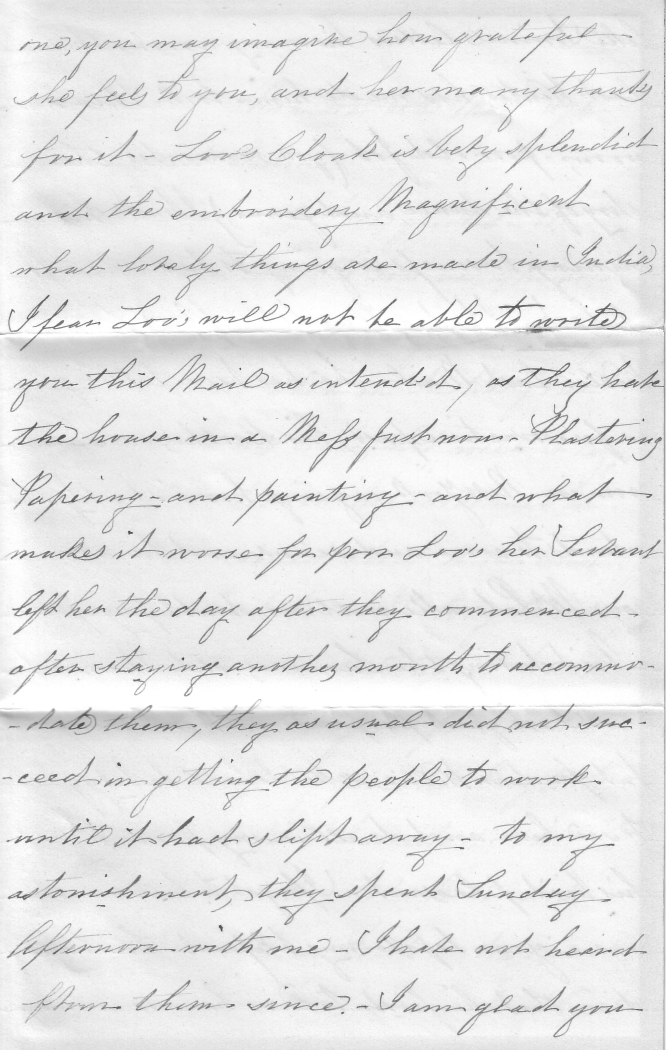 one, you may imagine how grateful
she feels to you, and her many thanks
for it - Loo's Cloak is very splendid
and the embroidery Magnificent
what lovely things are made in India,
I fear Loo's will not be able to write
you this Mail as intend'd, as they have
the house in a Mess just now - Plastering
Papering - and painting - and what
makes it worse for poor Loo's her Servant
left her the day after they commenced -
after staying another month to accommo-
-date them, they as usual did not suc-
-ceed in getting the people to work
until it had slipt away - to my
astonishment, they spent Sunday
Afternoon with me - I have not heard
from them since. - I am glad you